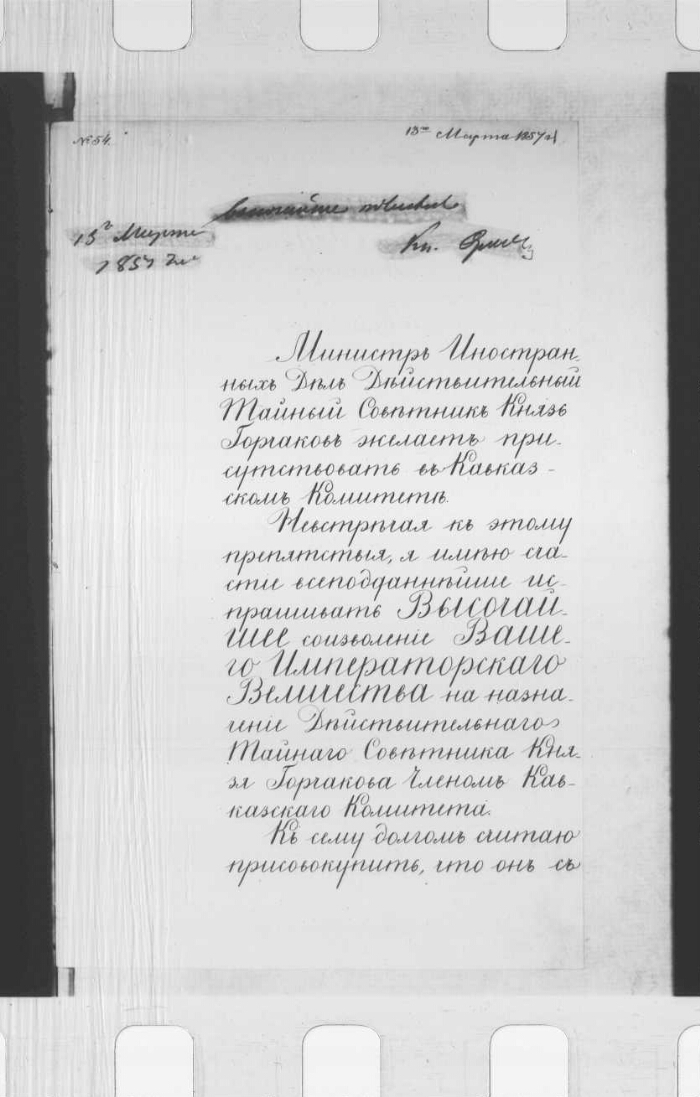 № 54.
13го Марта 1857 г.
Высочайше
13го Марта
1857 г.
Кн. Орловъ
Министръ Иностран-
ныхъ Дѣлъ Дѣйствительный
Тайный Совѣтникъ Князь
Горчаковъ желаетъ при-
сутствовать въ Кавказ-
скомъ Комитетѣ.
Невстрѣчая къ этому
препятствія, я имѣю сча-
стіе всеподданнѣйше ис-
прашивать Высочай-
шее соизволеніе Ваше-
го Императорскаго
Величества на назна-
ченіе Дѣйствительнаго
Тайнаго Совѣтника Кня-
зя Горчакова Членомъ Кав-
казскаго Комитета.
Къ сему долгомъ считаю
присовокупить, что онъ съ